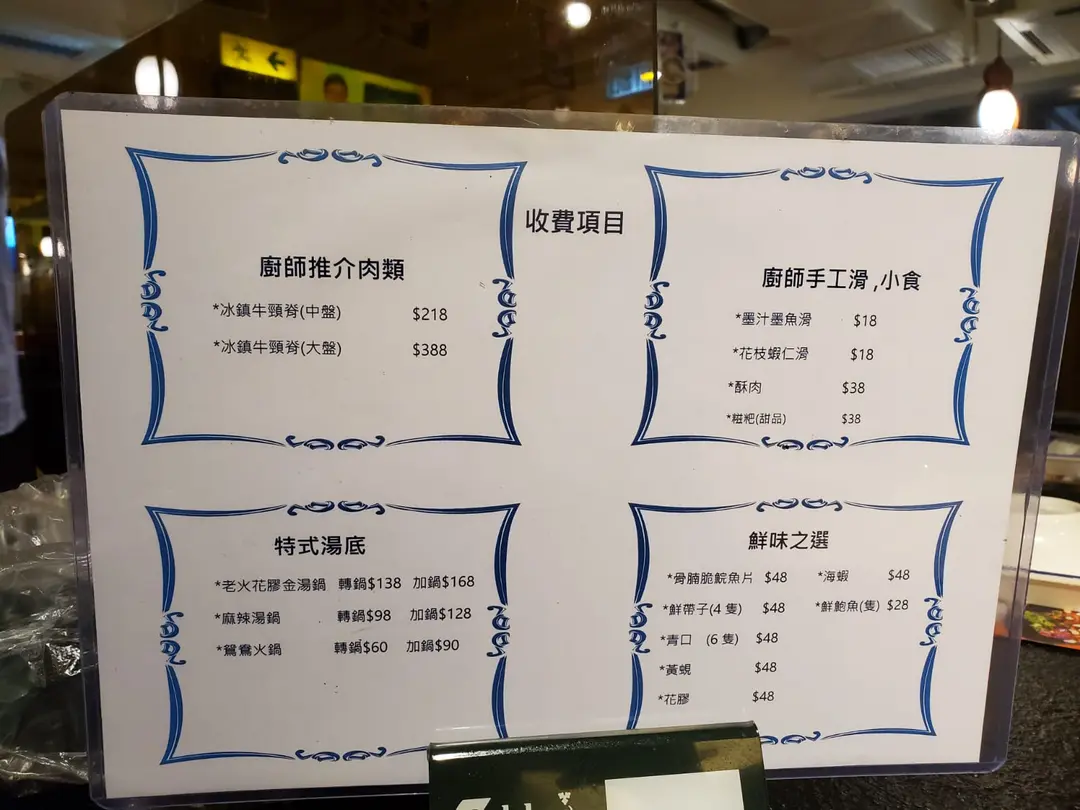 收費項目
廚師推介肉類
*冰鎮牛頸脊(中盤) $218
*冰鎮牛頸脊(大盤) $388
廚師手工滑,小食
*墨汁墨魚滑 $18
*花枝蝦仁滑 $18
*酥肉 $38
*糍粑(甜品) $38
特式湯底
*老火花膠金湯鍋 轉鍋$138 加鍋$168
*麻辣湯鍋 轉鍋$98 加鍋$128
*鴛鴦火鍋 轉鍋$60 加鍋$90
鮮味之選
*骨腩脆鯇魚片 $48 *海蝦 $48
*鮮帶子(4 隻) $48 *鮮鮑魚(隻) $28
*青口 (6 隻) $48
*黃蜆 $48
*花膠 $48